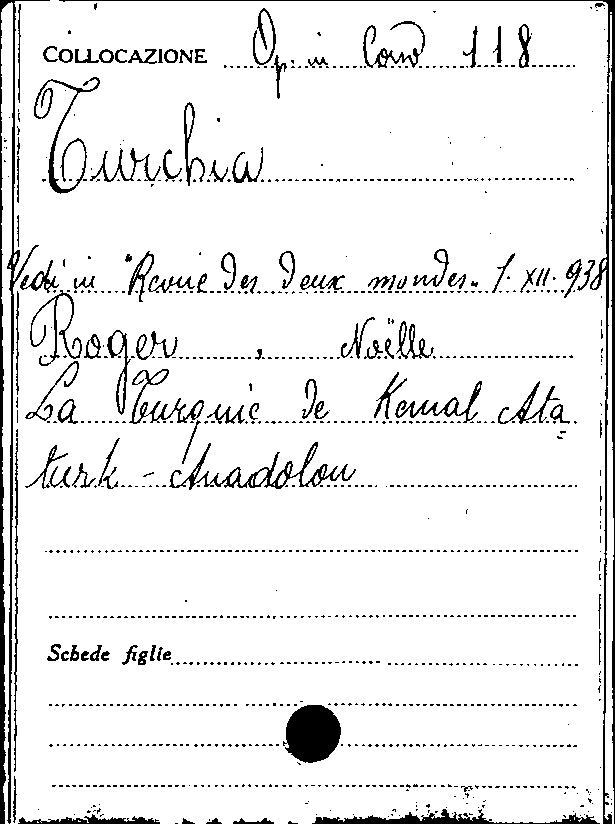 COLLOCAZIONE Op. in Cons 118
Turchia
Vedi in "Revue des deux mondes" 1. XII. 938
Roger, Noëlle
La Turquie de Kemal Ata=
turk - Anadolou
Schede figlie